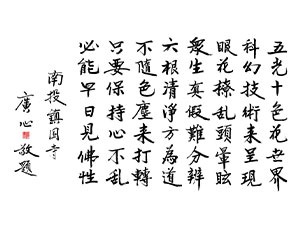 五光十色花世界
科幻技術來呈現
眼花撩亂頭暈眩
眾生真假難分辨
六根清淨方為道
不隨色塵來打轉
只要保持心不亂
必能早日見佛性
南投鎮國寺
廣心敬題